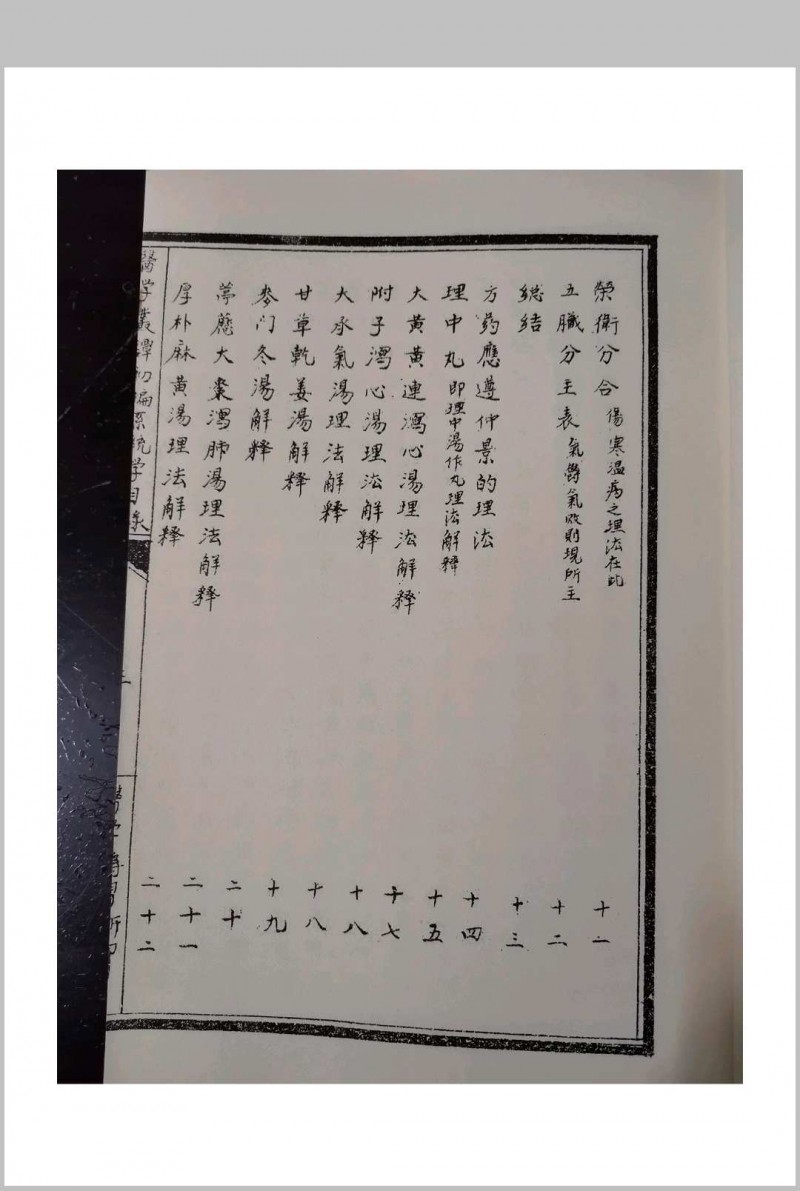 榮衛分合 傷寒温病之理法在此 十一
五臟分主表 氣欝氣敗則現所主 十二
總結 十三
方药應遵仲景的理法 十四
理中丸 即理中湯作丸理法解釋 十五
大黄黄連瀉心湯理法解釋 十七
附子瀉心湯理法解釋 十八
大承氣湯理法解釋 十八
甘草乾姜湯解釋 十九
麥门冬湯解釋 二十
葶藶大棗瀉肺湯理法解釋 二十一
厚朴麻黄湯理法解釋 二十二
醫学叢譚初编系統学目录
三